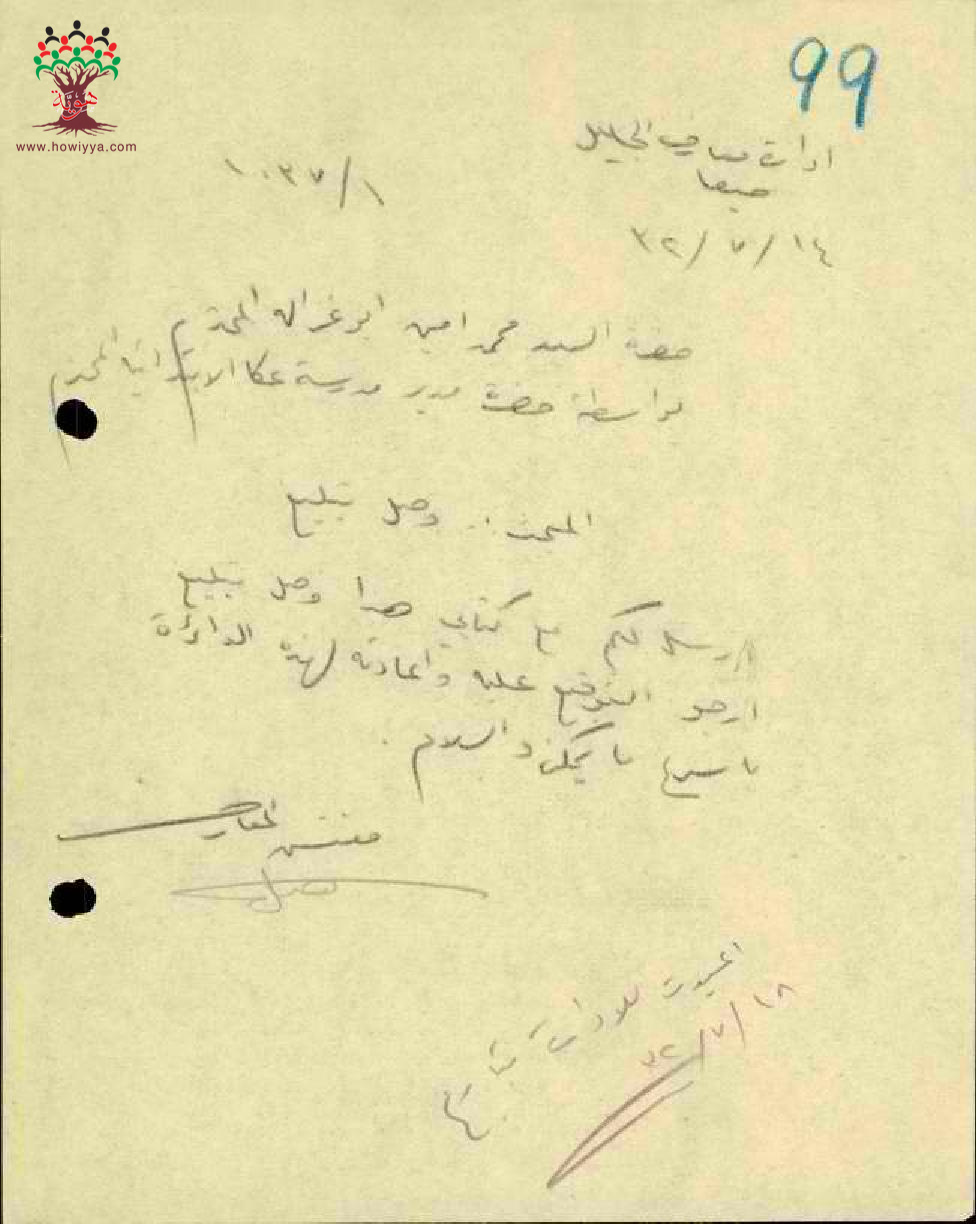 هوية
www.howiyya.com
99
ادارة معارف الجليل
حيفا
١٤/٧/٣٢
١٠٣٧/١
حضرة السيد محمد امين ابو غزاله المحترم
بواسطة حضرة مدير مدرسة عكا الابتدائية المحترم
المبحث: وصل تبليغ
ارسل لكم مع كتابي هذا وصل تبليغ
ارجو التوقيع عليه واعادته لهذه الدائرة
باسرع ما يمكن والسلام.
مفتش المعارف
اعيدت للادارة
١٨/٧/٣٢